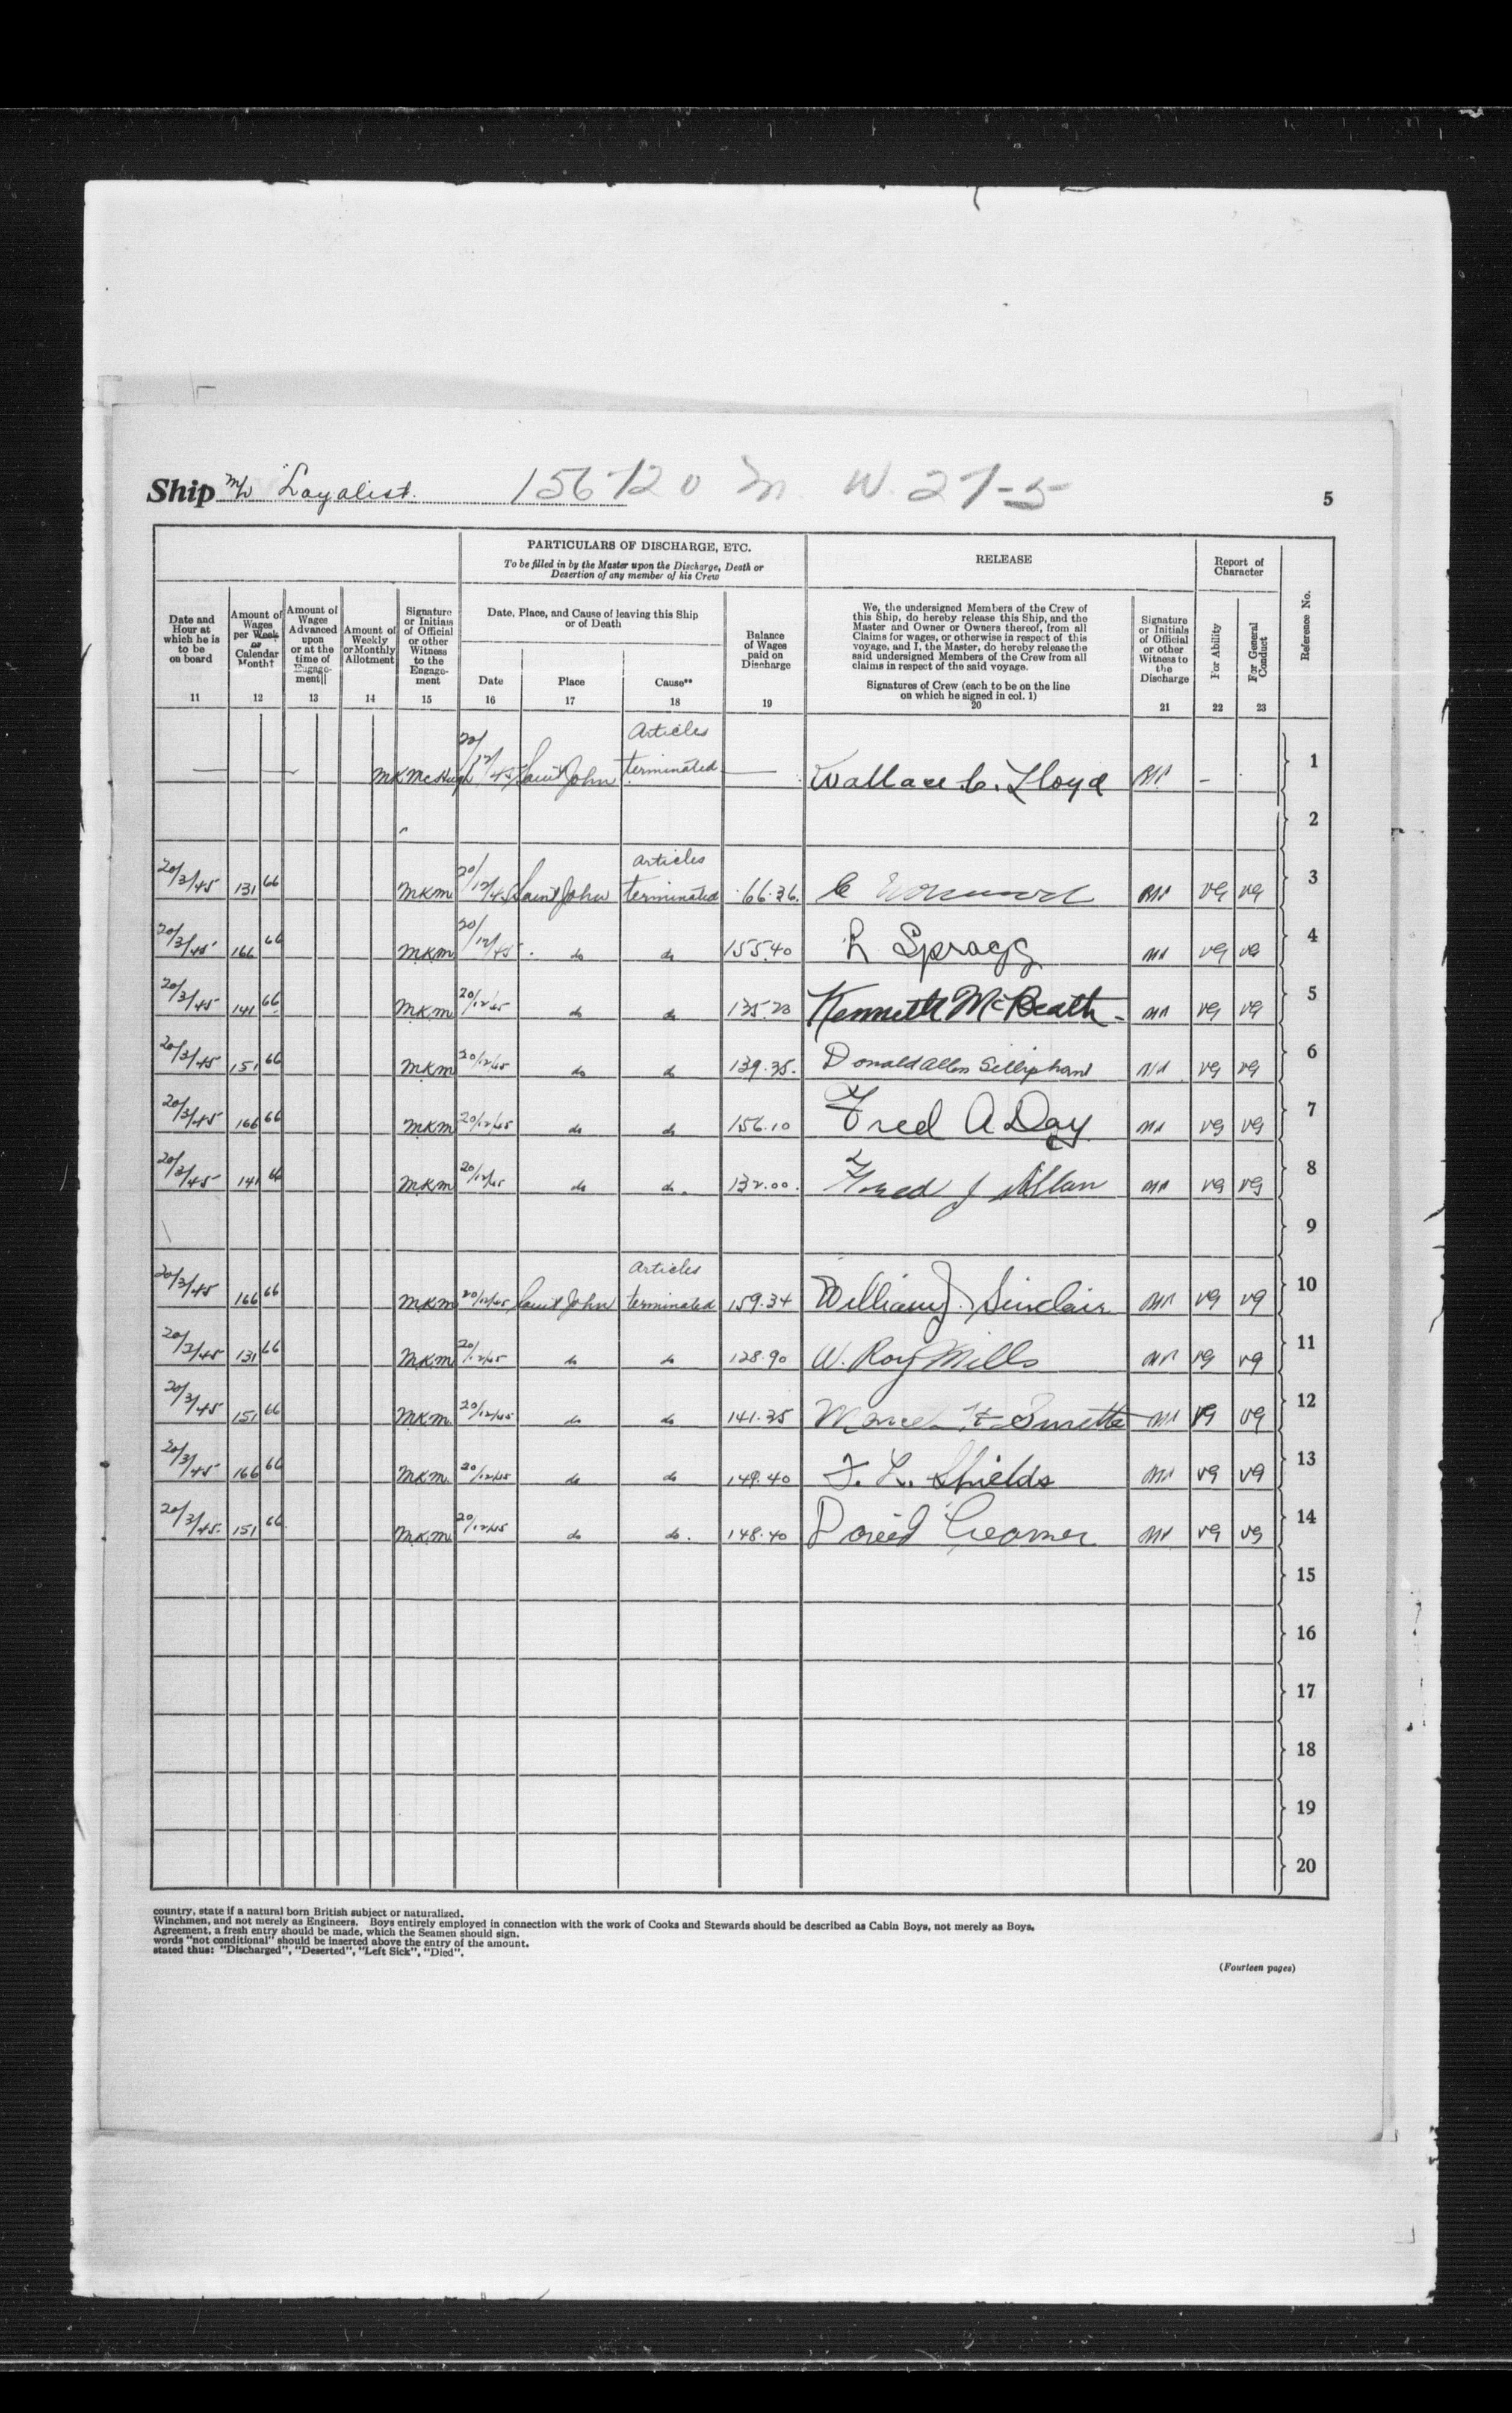 Ship M/V "Loyalist. 156720 M. W. 27-5
5
PARTICULARS OF DISCHARGE, ETC.
To be filled in by the Master upon the Discharge, Death or
Desertion of any member of his Crew
RELEASE
Report of
Character
Reference No.
Date and
Hour at
which he is
to be
on board
11
Amount of
Wages
per Week
or
Calendar
Month†
12
Amount of
Wages
Advanced
upon
or at the
time of
Engage-
ment||
13
Amount of
Weekly
or Monthly
Allotment
14
Signature
or Initials
of Official
or other
Witness
to the
Engage-
ment
15
Date, Place, and Cause of leaving this Ship
or of Death
Date
16
Place
17
Cause**
18
Balance
of Wages
paid on
Discharge
19
We, the undersigned Members of the Crew of
this Ship, do hereby release this Ship, and the
Master and Owner or Owners thereof, from all
Claims for wages, or otherwise in respect of this
voyage, and I, the Master, do hereby release the
said undersigned Members of the Crew from all
claims in respect of the said voyage.
Signatures of Crew (each to be on the line
on which he signed in col. 1)
20
Signature
or Initials
of Official
or other
Witness to
the
Discharge
21
For Ability
22
For General
Conduct
23
Articles
— — MKMcHugh 20/12/45 Saint John terminated — Wallace C. Lloyd – 1
2
Articles
20/3/45 131 66 MKM 20/12/45 Saint John terminated 66.36. C VG VG 3
20/3/45 166 66 MKM 20/12/45 do do 155.40 R Spragg VG VG 4
20/3/45 141 66 MKM 20/12/45 do do 135.23 Kenneth McBeath VG VG 5
20/3/45 151 66 MKM 20/12/45 do do 139.35. Donald Allen Silliphant VG VG 6
20/3/45 166 66 MKM 20/12/45 do do 156.10 Fred A Day VG VG 7
20/3/45 141 66 MKM 20/12/45 do do. 132.00. Fred J Allan VG VG 8
9
Articles
20/3/45 166 66 MKM 20/12/45 Saint John terminated 159.34 William J. Sinclair VG VG 10
20/3/45 131 66 MKM 20/12/45 do do 128.90 W. Roy Mills VG VG 11
20/3/45 151 66 MKM 20/12/45 do do 141.35 Surette VG VG 12
20/3/45 166 66 MKM 20/12/45 do do 149.40 F. L. Shields VG VG 13
20/3/45. 151 66 MKM 20/12/45 do do. 148.40 David Creamer VG VG 14
15
16
17
18
19
20
country, state if a natural born British subject or naturalized.
Winchmen, and not merely as Engineers. Boys entirely employed in connection with the work of Cooks and Stewards should be described as Cabin Boys, not merely as Boys.
Agreement, a fresh entry should be made, which the Seamen should sign.
words "not conditional" should be inserted above the entry of the amount.
stated thus: "Discharged", "Deserted", "Left Sick", "Died".
(Fourteen pages)